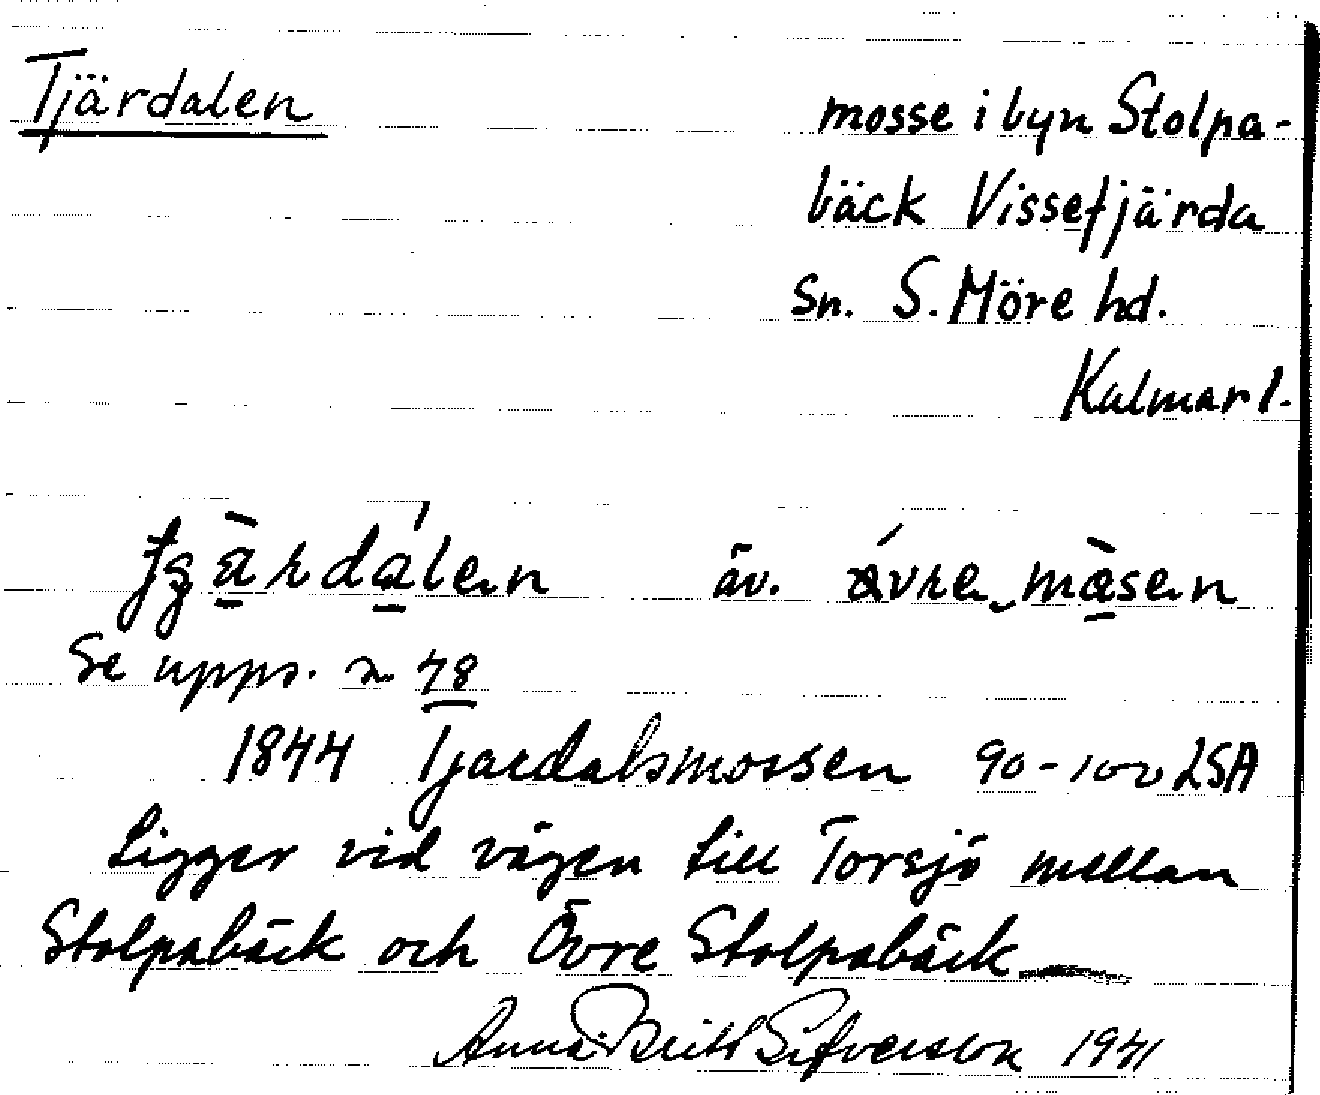 Tjärdalen
mosse i byn Stolpa-
bäck Vissefjärda
Sn. S. Möre hd.
Kalmar l.
äv.
Se upps. n. 78
1844 Tjärdalsmossen 90-100 LSA
Ligger vid vägen till Torsjö mellan
Stolpabäck och Övre Stolpabäck
Anna-Britt Sifversson 1941